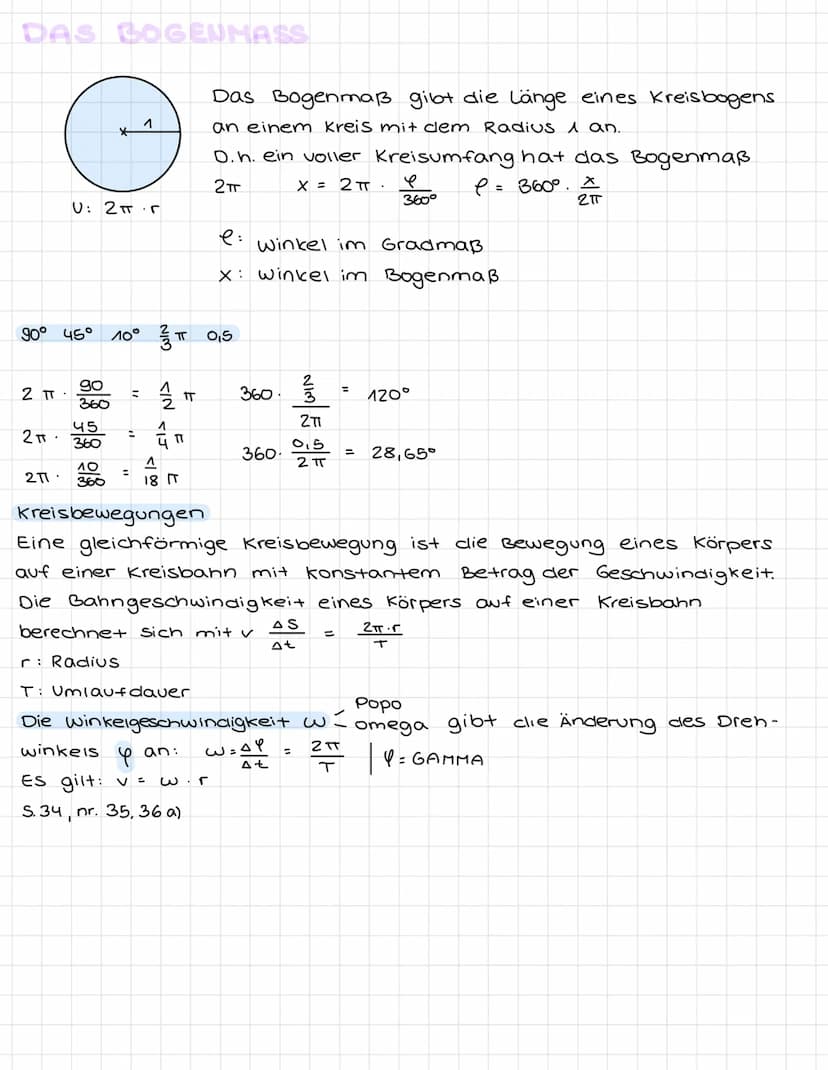 DAS BOGENMASS
1
U: 2π · r
Das Bogenmaß gibt die Länge eines Kreisbogens
an einem Kreis mit dem Radius 1 an.
D.h. ein voller Kreisumfang hat das Bogenmaß
2π x = 2π · φ/360° φ = 360° · x/2π
φ: Winkel im Gradmaß
x: Winkel im Bogenmaß
90° 45° 10° 2/3 π 0,5
2π · 90/360 = 1/2 π
2π · 45/360 = 1/4 π
2π · 10/360 = 1/18 π
360 · 2/3/2π = 120°
360 · 0,5/2π = 28,65°
Kreisbewegungen
Eine gleichförmige Kreisbewegung ist die Bewegung eines Körpers
auf einer Kreisbahn mit konstantem Betrag der Geschwindigkeit.
Die Bahngeschwindigkeit eines Körpers auf einer Kreisbahn
berechnet sich mit v ΔS/Δt = 2π·r/T
r: Radius
T: Umlaufdauer
Popo
Die Winkelgeschwindigkeit ω omega gibt die Änderung des Dreh-
winkels φ an: ω = Δφ/Δt = 2π/T | φ = GAMMA
Es gilt: v = ω · r
S.34, nr. 35, 36 a)